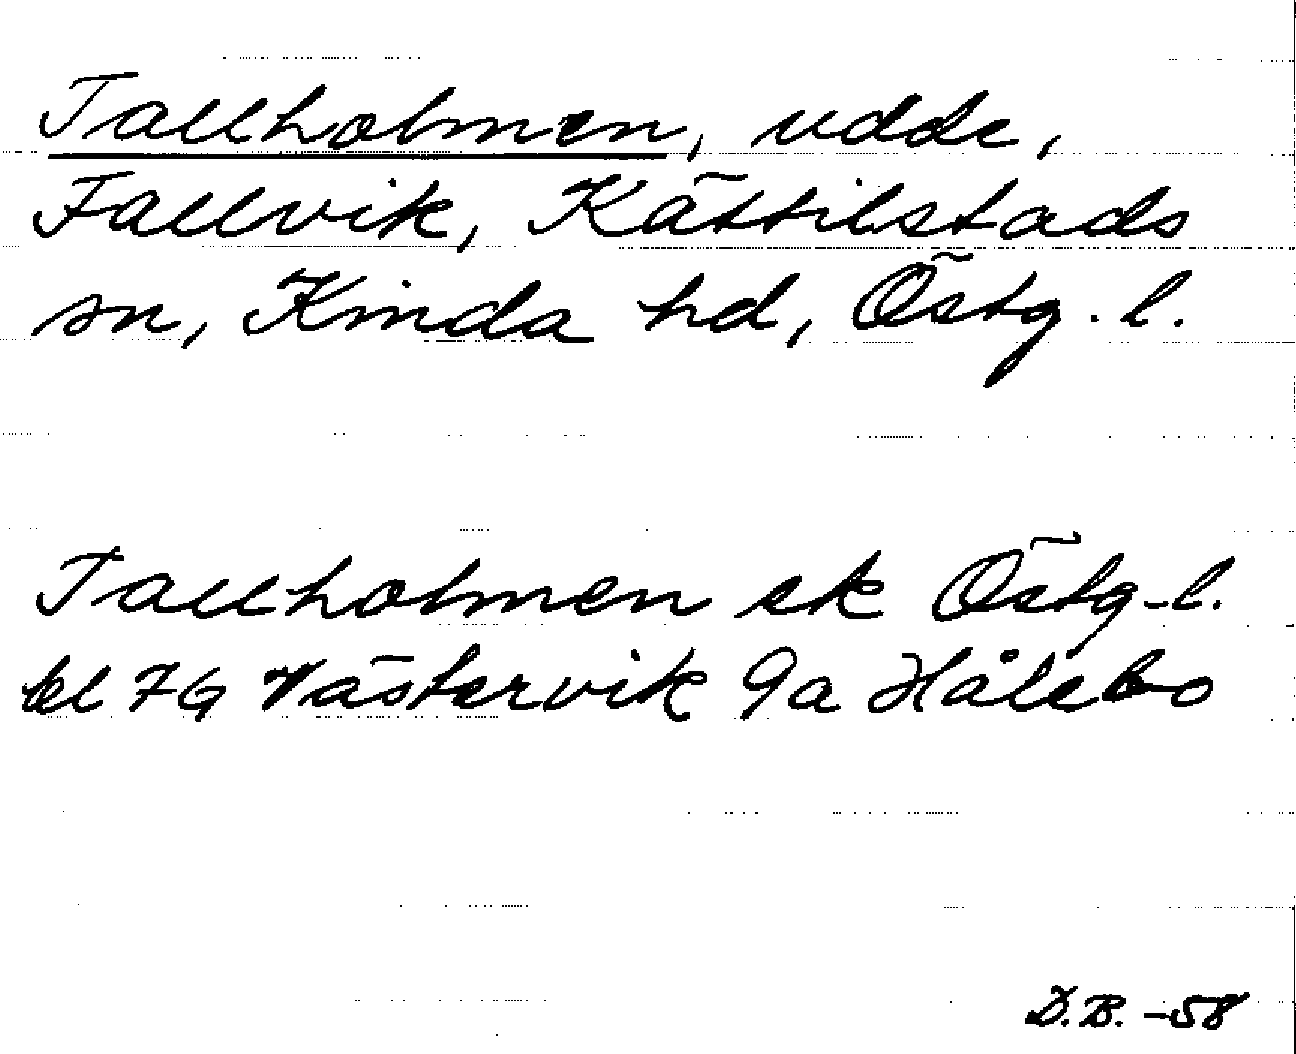 Tallholmen, udde,
Fallvik, Kättilstads
sn, Kinda hd, Östg. l.
Tallholmen ek Östg-l.
bl 7G Västervik 9a Hålebo
D.B. -58